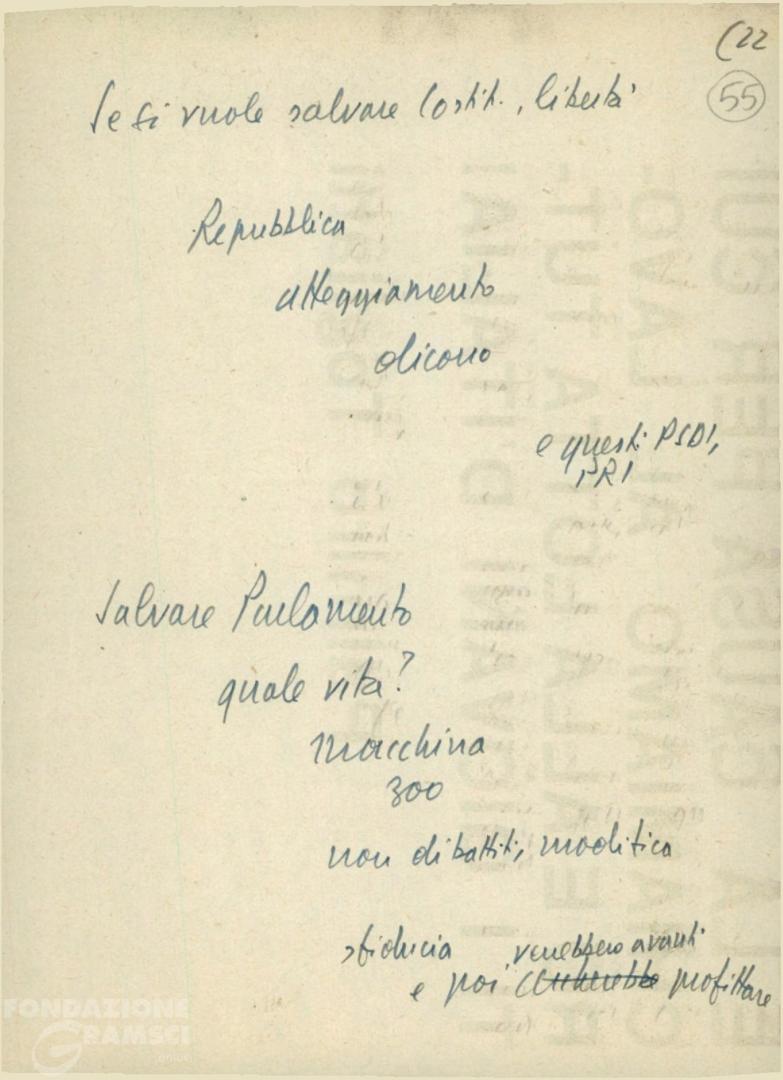 (22
55
Se si vuole salvare Costit., libertà
Repubblica
atteggiamento
dicono
e questi PSDI,
PRI
Salvare Parlamento
quale vita?
macchina
300
non dibattiti, modifica
sfiducia verrebbero avanti
e poi profittare
FONDAZIONE
GRAMSCI
onlus